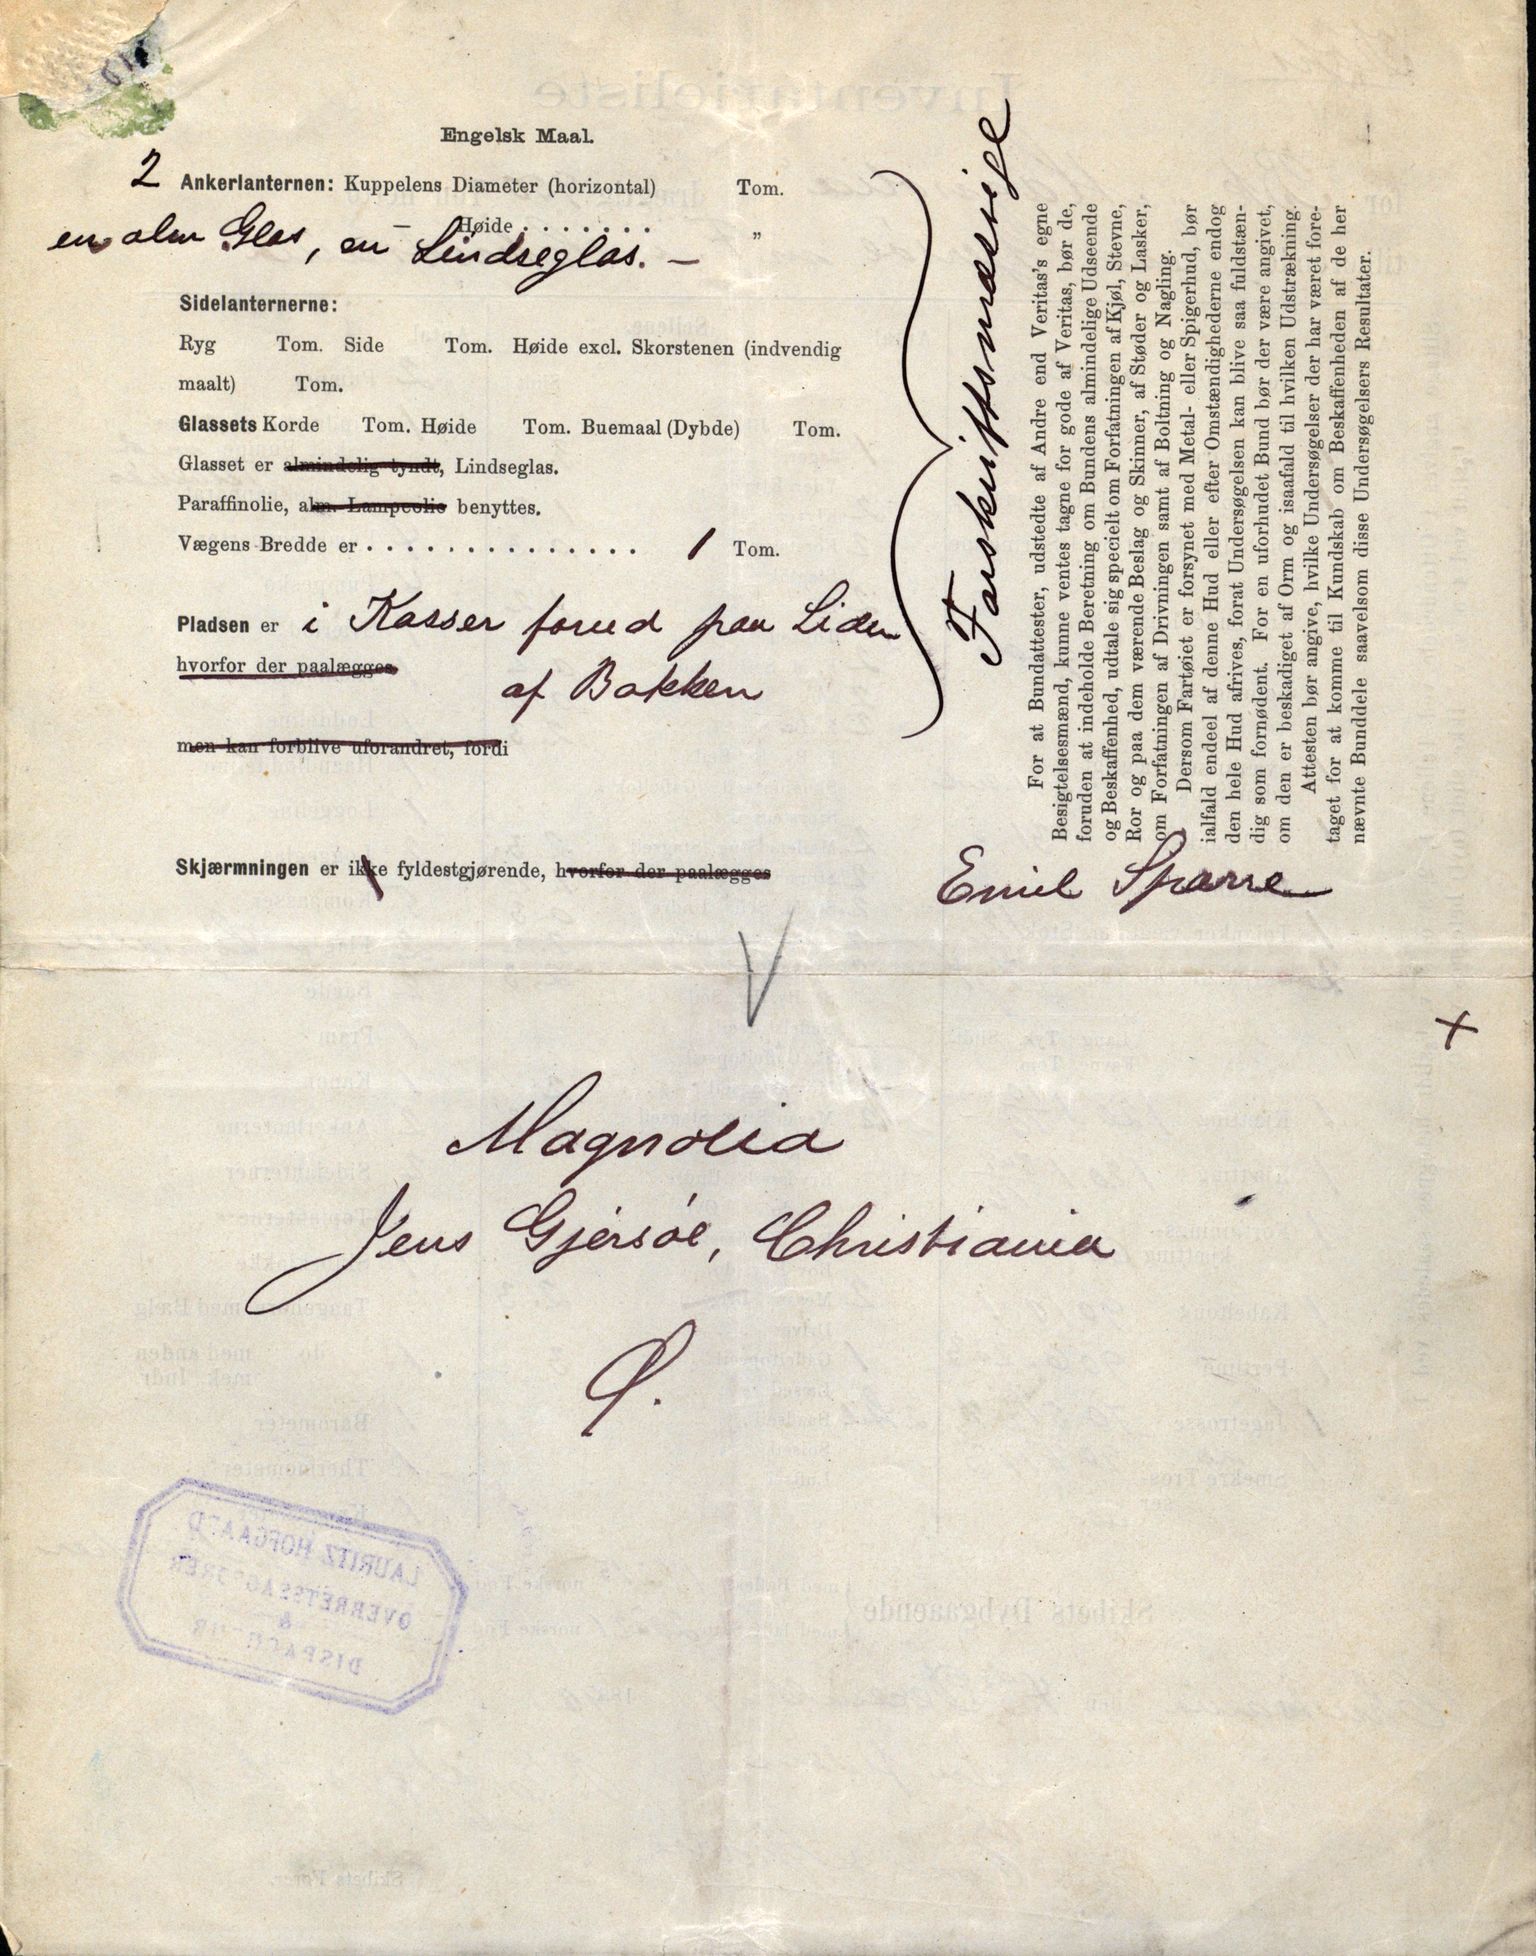 Engelsk Maal.
2 Ankerlanternen: Kuppelens Diameter (horizontal) Tom.
— Høide . . . . . . . "
en alm Glas, en Lindseglas. —
Sidelanternerne:
Ryg Tom. Side Tom. Høide excl. Skorstenen (indvendig
maalt) Tom.
Glassets Korde Tom. Høide Tom. Buemaal (Dybde) Tom.
Glasset er almindelig tyndt, Lindseglas.
Paraffinolie, alm. Lampeolie benyttes.
Vægens Bredde er . . . . . . . . . . . . . . . 1 Tom.
Pladsen er i Kasser forud paa Siden
hvorfor der paalægges
af Bakken
men kan forblive uforandret, fordi
Skjærmningen er ikke fyldestgjørende, hvorfor der paalægges
Forskriftsmæssige
For at Bundattester, udstedte af Andre end Veritas's egne
Besigtelsesmænd, kunne ventes tagne for gode af Veritas, bør de,
foruden at indeholde Beretning om Bundens almindelige Udseende
og Beskaffenhed, udtale sig specielt om Forfatningen af Kjøl, Stevne,
Ror og paa dem værende Beslag og Skinner, af Støder og Lasker,
om Forfatningen af Drivningen samt af Boltning og Nagling.
Dersom Fartøiet er forsynet med Metal- eller Spigerhud, bør
ialfald endeel af denne Hud eller efter Omstændighederne endog
den hele Hud afrives, forat Undersøgelsen kan blive saa fuldstæn-
dig som fornødent. For en uforhudet Bund bør der være angivet,
om den er beskadiget af Orm og isaafald til hvilken Udstrækning.
Attesten bør angive, hvilke Undersøgelser der har været fore-
taget for at komme til Kundskab om Beskaffenheden af de her
nævnte Bunddele saavelsom disse Undersøgelsers Resultater.
Emil Sparre
Magnolia
Jens Gjersøe, Christiania
Ø.
LAURITZ HOFGAARD
OVERRETSSAGFØRER
&
DISPACHEUR